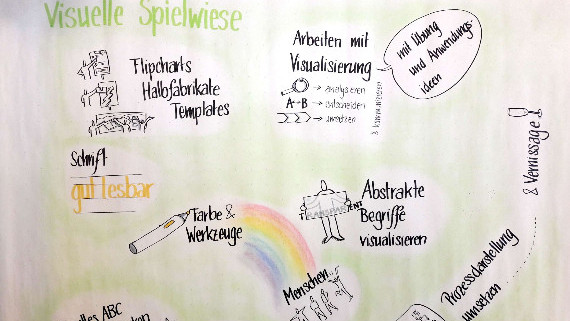 Visuelle Spielwiese
Flipcharts
Halbfabrikate
Templates
Arbeiten mit
Visualisierung
→ analysieren
A→B → entscheiden
→ umsetzen
& kommunizieren
mit Übung
und Anwendungs-
ideen
Schrift
gut lesbar
Farbe &
Werkzeuge
Abstrakte
Begriffe
visualisieren
& Vernissage
Menschen..
Prozessdarstellung
umsetzen
ABC